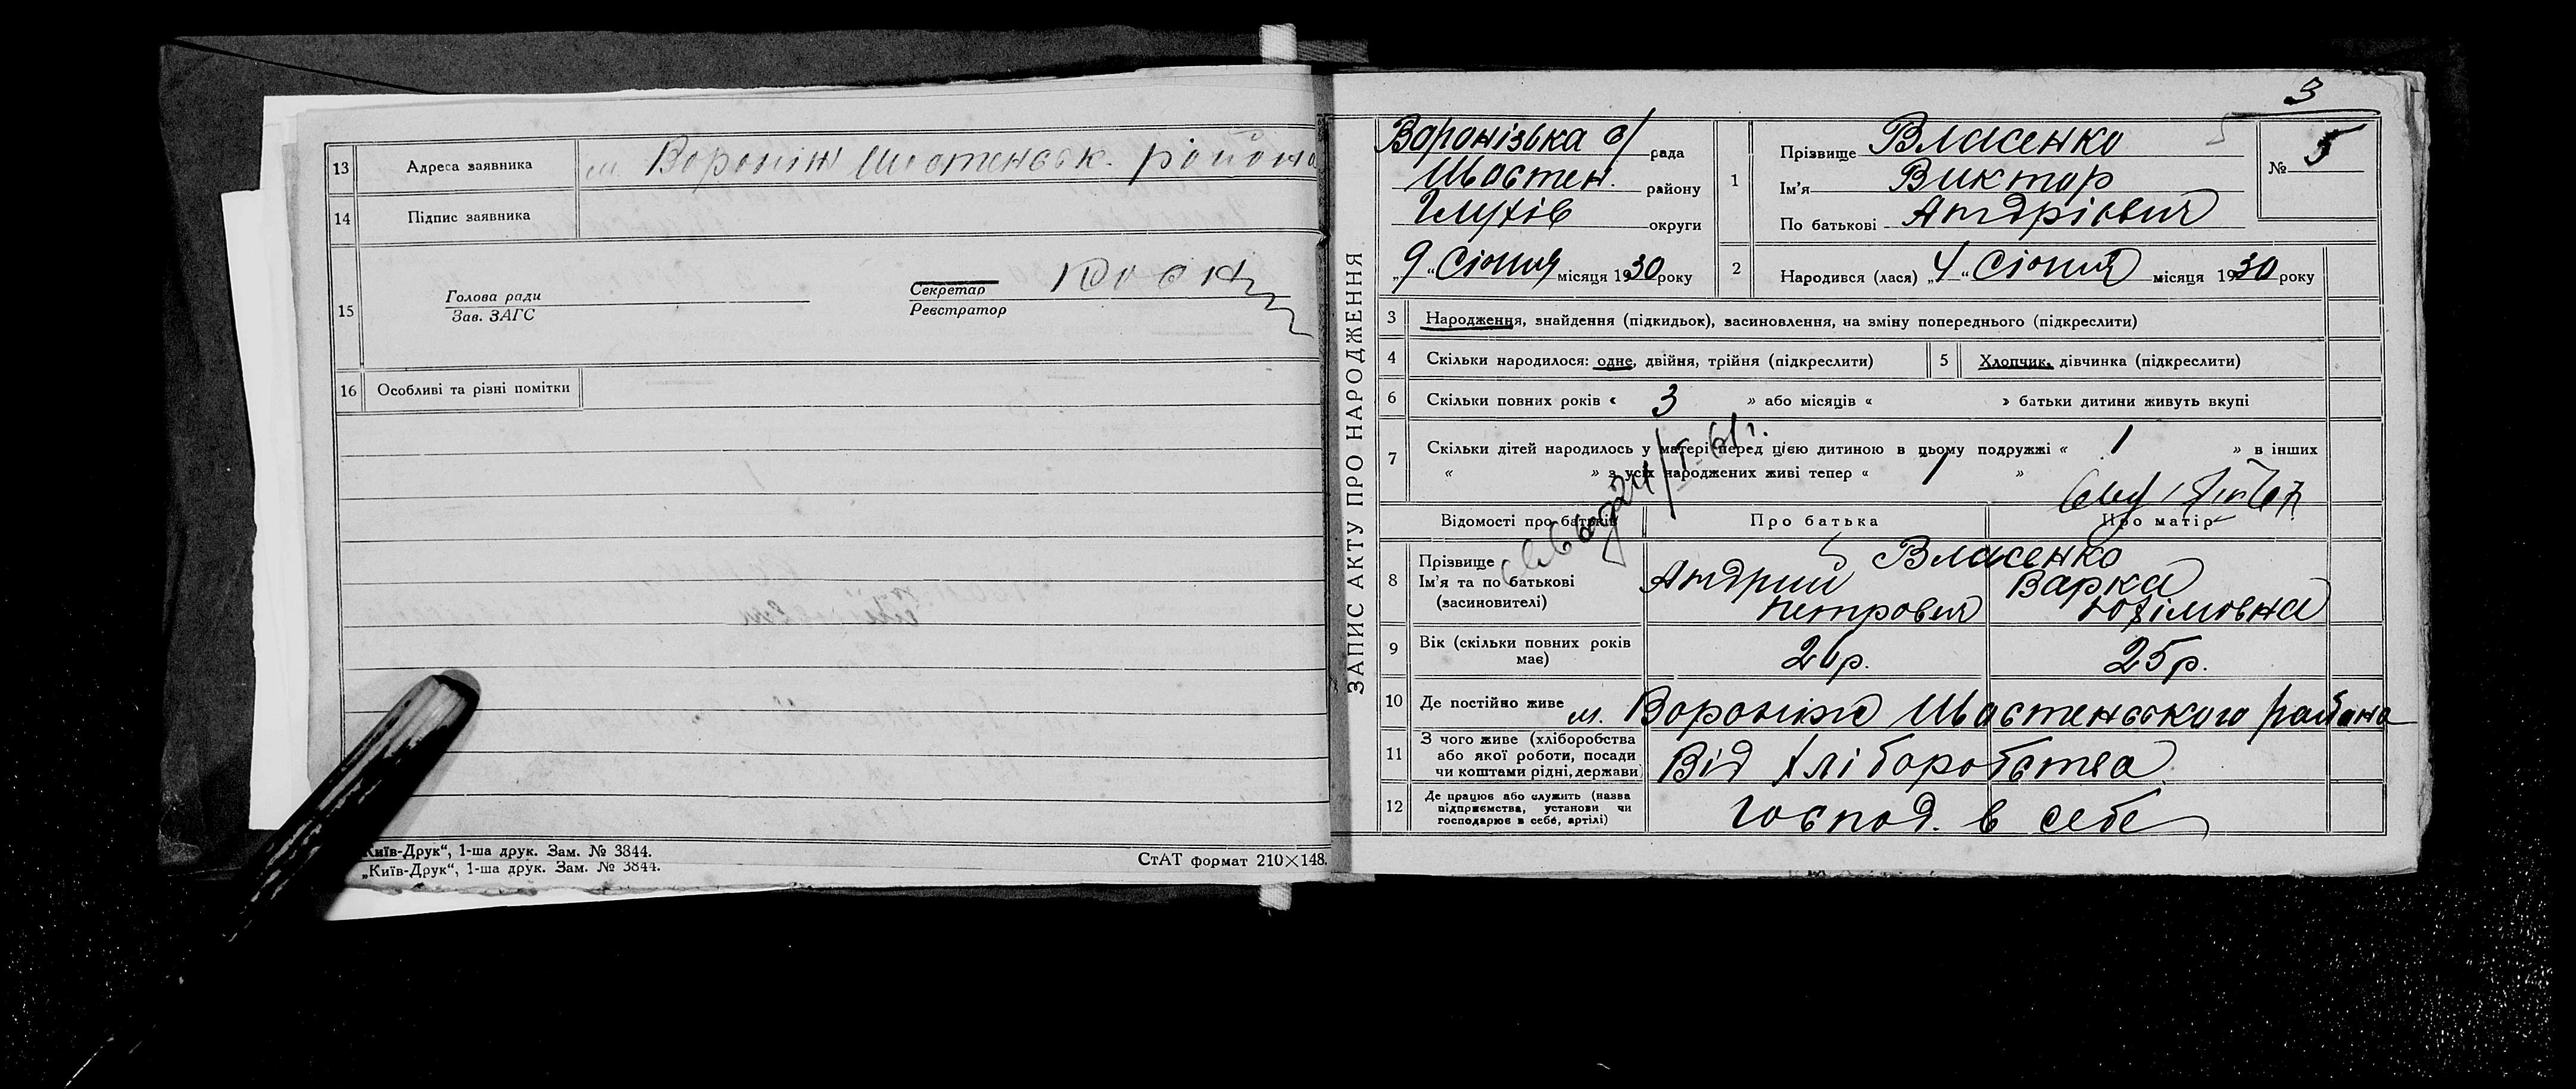 13 Адреса заявника м. Вороніж Шостенськ. району
14 Підпис заявника
15 Голова ради
Зав. ЗАГС
Секретар
Реєстратор
16 Особливі та різні помітки
„Київ-Друк“, 1-ша друк. Зам. № 3844.
„Київ-Друк“, 1-ша друк. Зам. № 3844.
СтАТ формат 210×148.
ЗАПИС АКТУ ПРО НАРОДЖЕННЯ
3
Воронізька с/ рада
Шостен. району
Глухів округи
„9“ Січня місяця 1930 року
1 Прізвище Власенко
Ім'я Виктор
По батькові Андрієвич
№ 5
2 Народився (лася) „4“ Січня місяця 1930 року
3 Народження, знайдення (підкидьок), засиновлення, на зміну попереднього (підкреслити)
4 Скільки народилося: одне, двійня, трійня (підкреслити)
5 Хлопчик, дівчинка (підкреслити)
6 Скільки повних років « 3 » або місяців « » батьки дитини живуть вкупі
7 Скільки дітей народилось у матері перед цією дитиною в цьому подружжі « 1 » в інших
« » з усіх народжених живі тепер « 1 »
Відомості про батьків Про батька Про матір
8 Прізвище Власенко
Ім'я та по батькові Андрий Варка
(засиновителі) Петрович Юхімовна
9 Вік (скільки повних років має) 26 р. 25 р.
10 Де постійно живе м. Вороніж Шостенського района
11 З чого живе (хліборобства
або якої роботи, посади
чи коштами рідні, держави) Від хліборобства
12 Де працює або служить (назва
підприємства, установи чи
господарює в себе, артілі) Господ. в себе